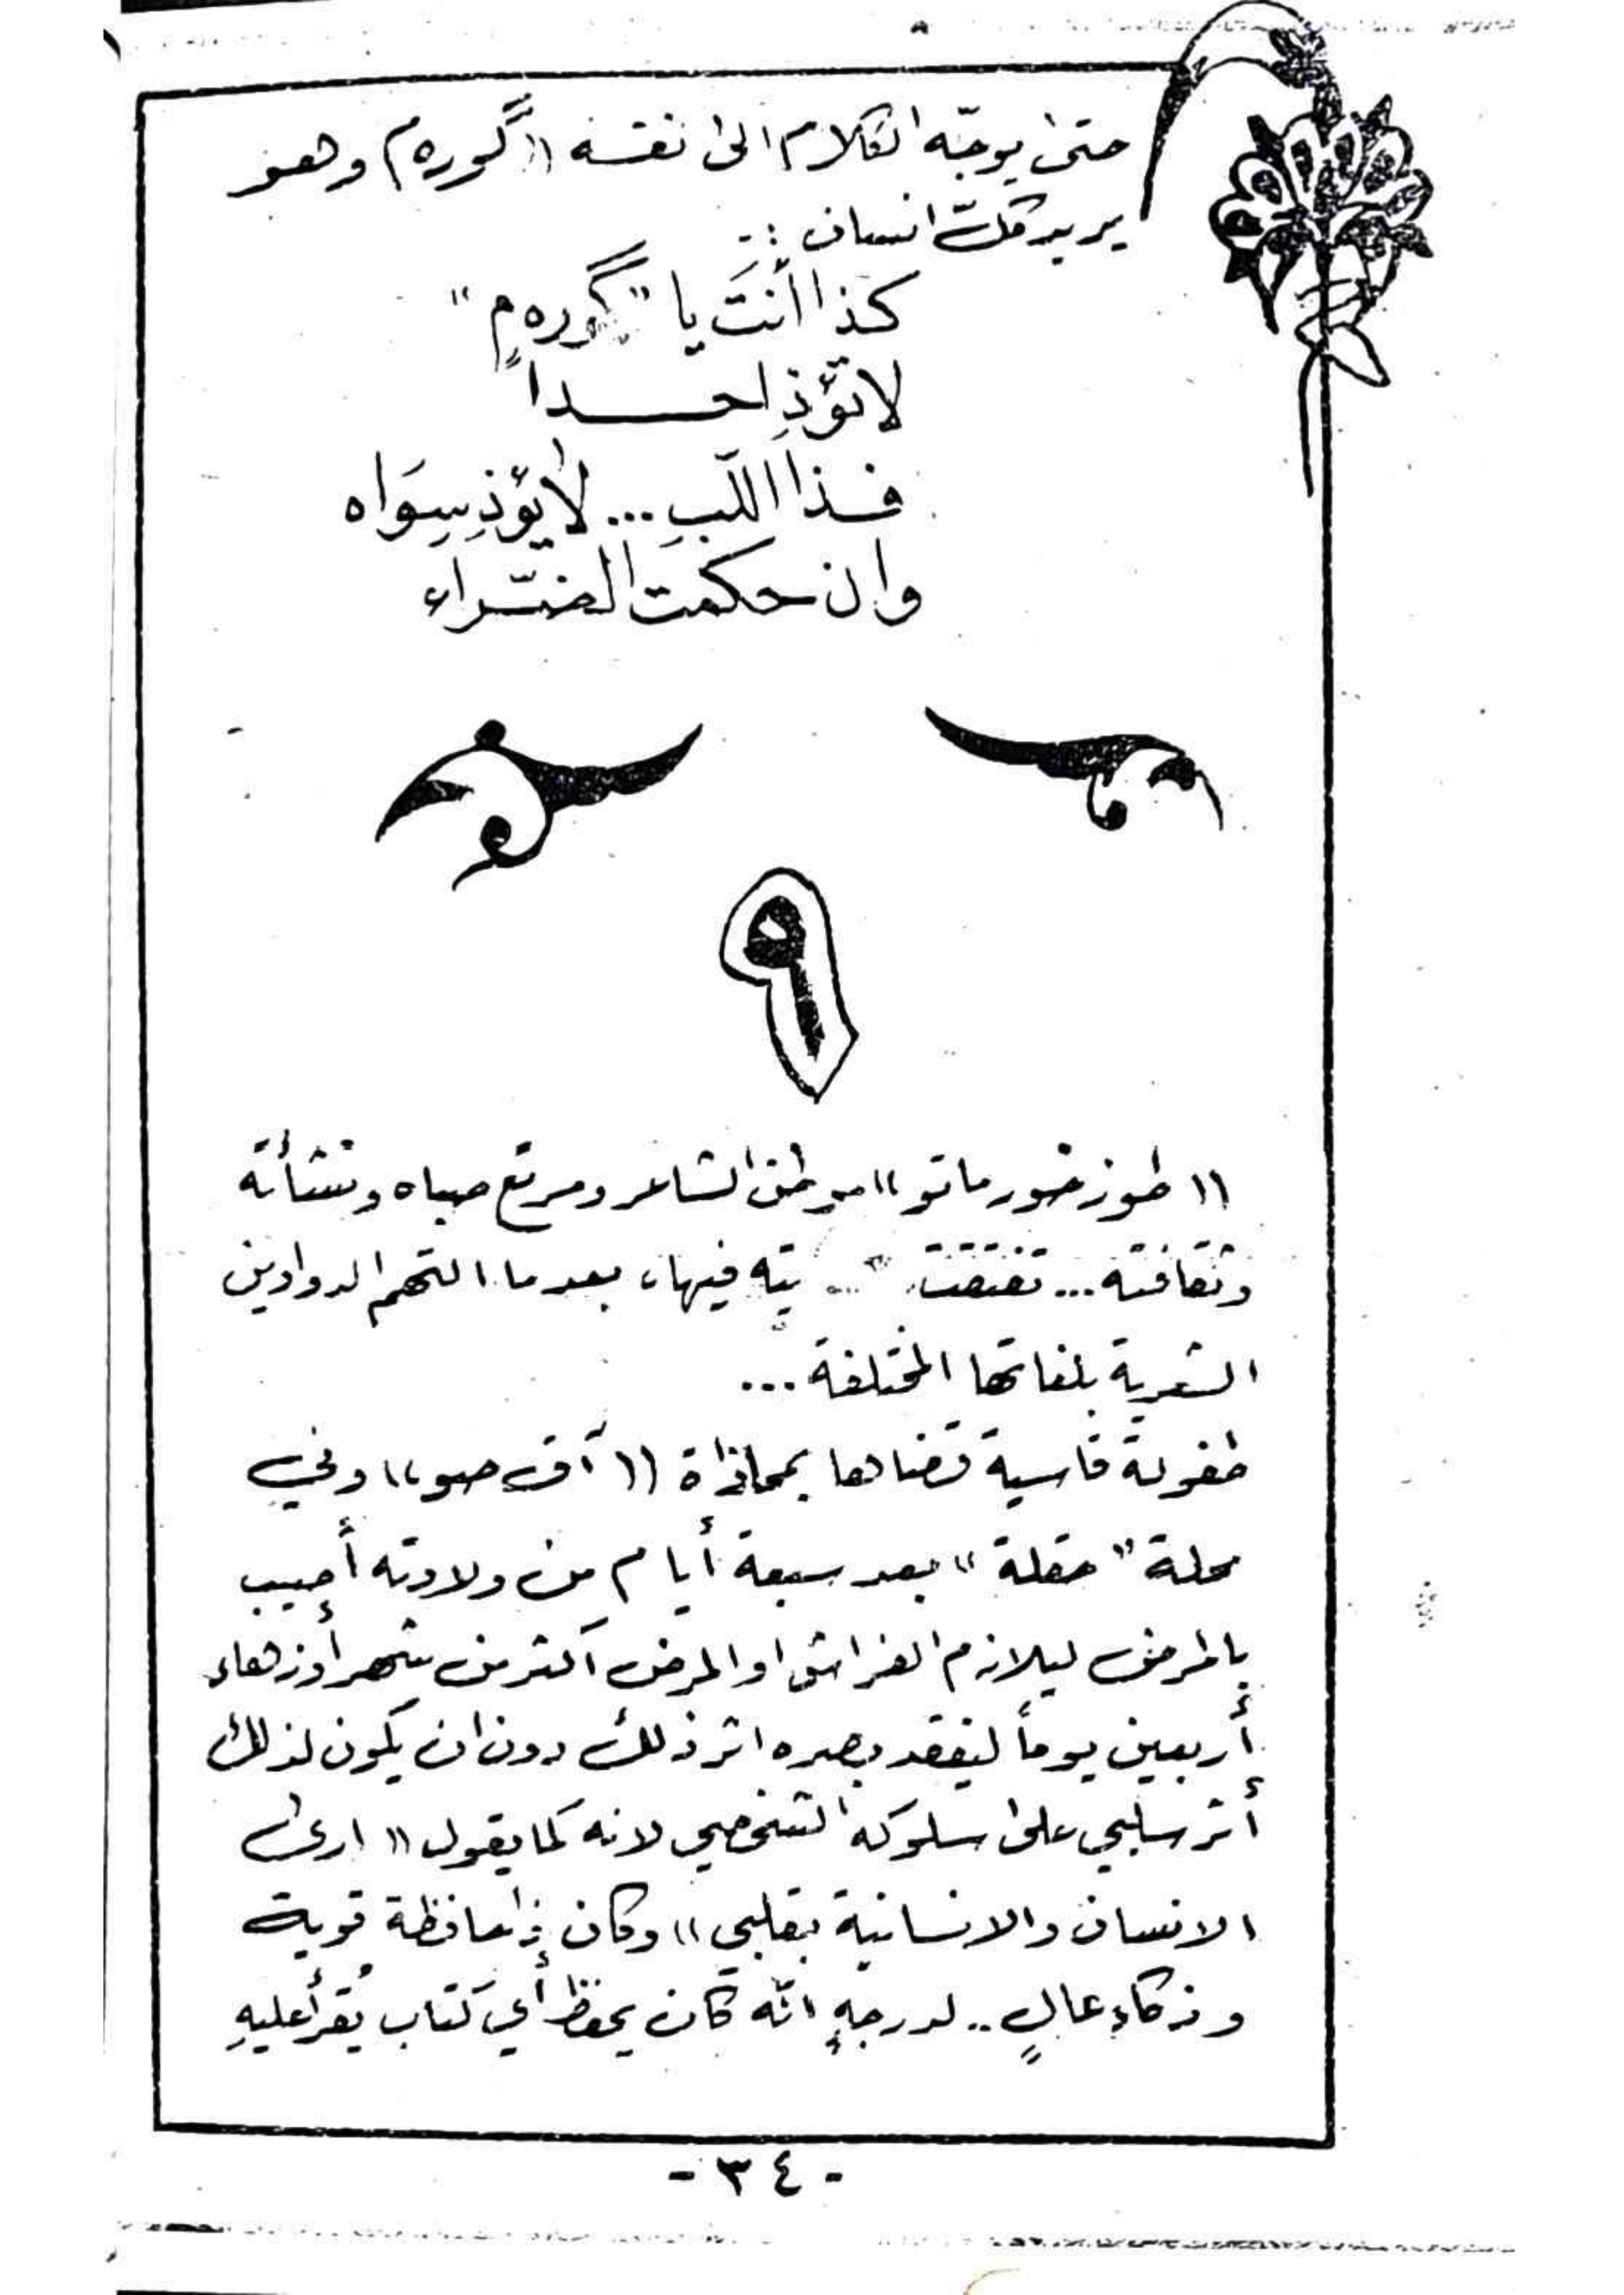 حتى يوجّه الكلام الى نفسه «گوره م وهو
يريد كلّ انسان :..
كذا أنتَ يا "گوره م"
لا تؤذِ احدا
فذا اللّب ... لا يؤذِ سِوَاه
وان حكمت الضّراء
٩
«طوز خورماتو» موطن الشاعر ومرتع صباه ونشأته
وثقافته ... تفتقت يته فيها، بعدما التهم الدواوين
الشعرية بلغاتها المختلفة ...
طفولة قاسية قضاها بمحاذاة «آق صو» وفي
محلة "حقلة" بعد سبعة أيام من ولادته أُصيب
بالمرض ليلازم الفراش او المرض اكثر من شهر أو زهاء
أربعين يوماً ليفقد بصره اثر ذلك دون ان يكون لذلك
أثر سلبي على سلوكه الشخصي لانه كما يقول «ارى
الانسان والانسانية بقلبي» وكان ذا حافظة قوية
وذكاء عالٍ .. لدرجةٍ انّه كان يحفظ أي كتاب يُقرأ عليهِ
- ٣٤ -